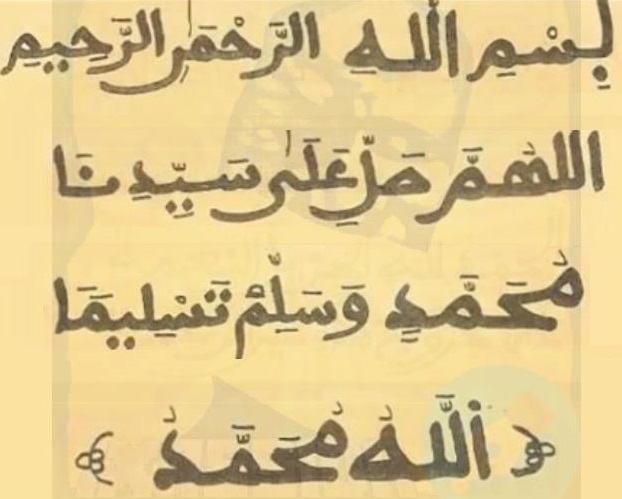 بِسْمِ اللَّهِ الرَّحْمَٰنِ الرَّحِيمِ
اللَّهُمَّ صَلِّ عَلَىٰ سَيِّدِنَا
مُحَمَّدٍ وَسَلِّمْ تَسْلِيمَا
اللَّهُ مُحَمَّدُ